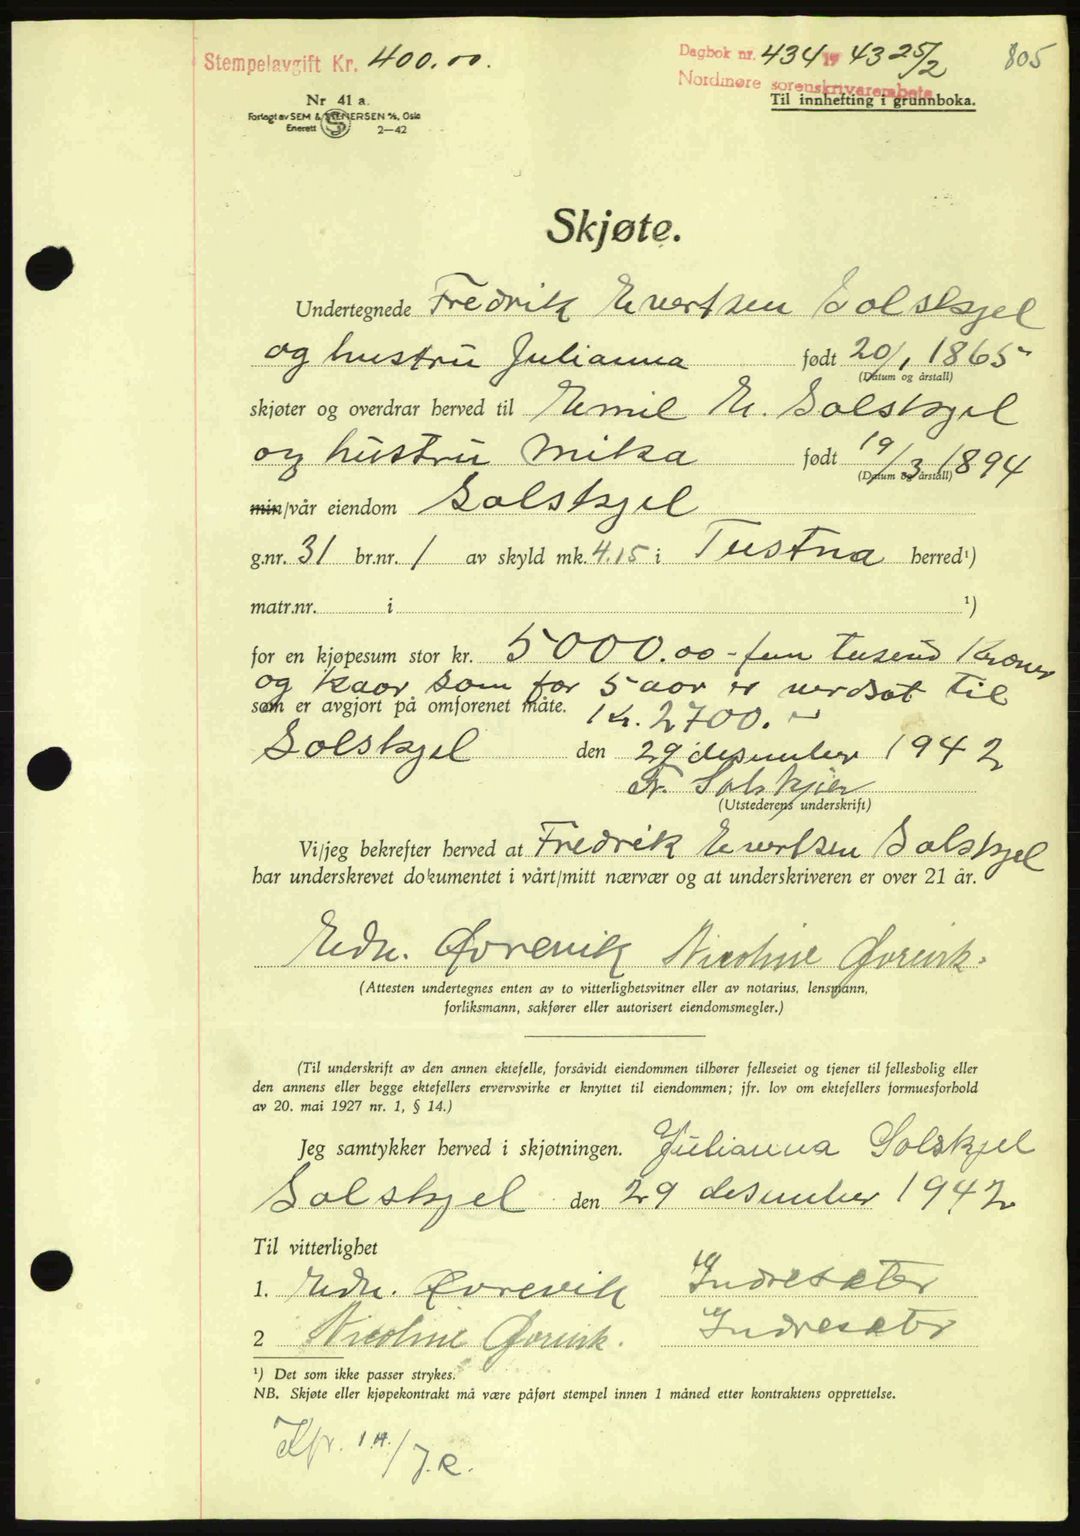 Stempelavgift Kr. 400.00.
Dagbok nr. 434 19 43 25/2 805
Nordmøre sorenskriverembete
Til innhefting i grunnboka.
Nr 41 a.
Forlagt av SEM & STENERSEN A/S, Oslo
Enerett 2—42
Skjøte.
Undertegnede Fredrik Evertsen Solskjel
og hustru Julianna født 20/1 1865
(Datum og årstall)
skjøter og overdrar herved til Emil E. Solskjel
og hustru Mika født 19/3 1894
(Datum og årstall)
min/vår eiendom Solskjel
g.nr. 31 br.nr. 1 av skyld mk. 4.15 i Tustna herred¹)
matr.nr. i ¹)
for en kjøpesum stor kr. 5000.00 - fem tusend Kroner
og kaar som for 5 aar er verdsat til
som er avgjort på omforenet måte. Kr. 2700. -
Solskjel den 29 desember 1942
Fr. Solskjier
(Utstederens underskrift)
Vi/jeg bekrefter herved at Fredrik Evertsen Solskjel
har underskrevet dokumentet i vårt/mitt nærvær og at underskriveren er over 21 år.
Edv. Øvrevik Nicoline Øvrevik.
(Attesten undertegnes enten av to vitterlighetsvitner eller av notarius, lensmann,
forliksmann, sakfører eller autorisert eiendomsmegler.)
(Til underskrift av den annen ektefelle, forsåvidt eiendommen tilhører felleseiet og tjener til fellesbolig eller
den annens eller begge ektefellers ervervsvirke er knyttet til eiendommen; jfr. lov om ektefellers formuesforhold
av 20. mai 1927 nr. 1, § 14.)
Jeg samtykker herved i skjøtningen. Julianna Solskjel
Solskjel den 29 desember 1942
Til vitterlighet
1. Edv. Øvrevik Indresæter
2 Nicoline Øvrevik. Indresæter
¹) Det som ikke passer strykes.
NB. Skjøte eller kjøpekontrakt må være påført stempel innen 1 måned etter kontraktens opprettelse.
Kfr.